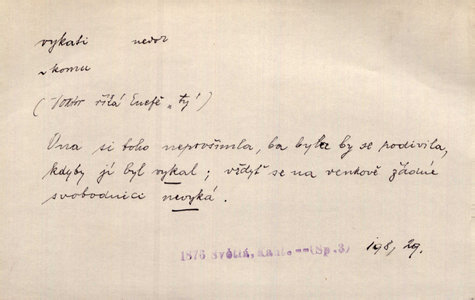 vykati nedok
~ komu
(Votór říká Enefě „ty")
Ona si toho nepovšimla, ba byla by se podivila,
kdyby jí byl vykal; vždyť se na venkově žádné
svobodnici nevyká.
1876 Světlá, Kant. -- (Sp.3) 198, 29.